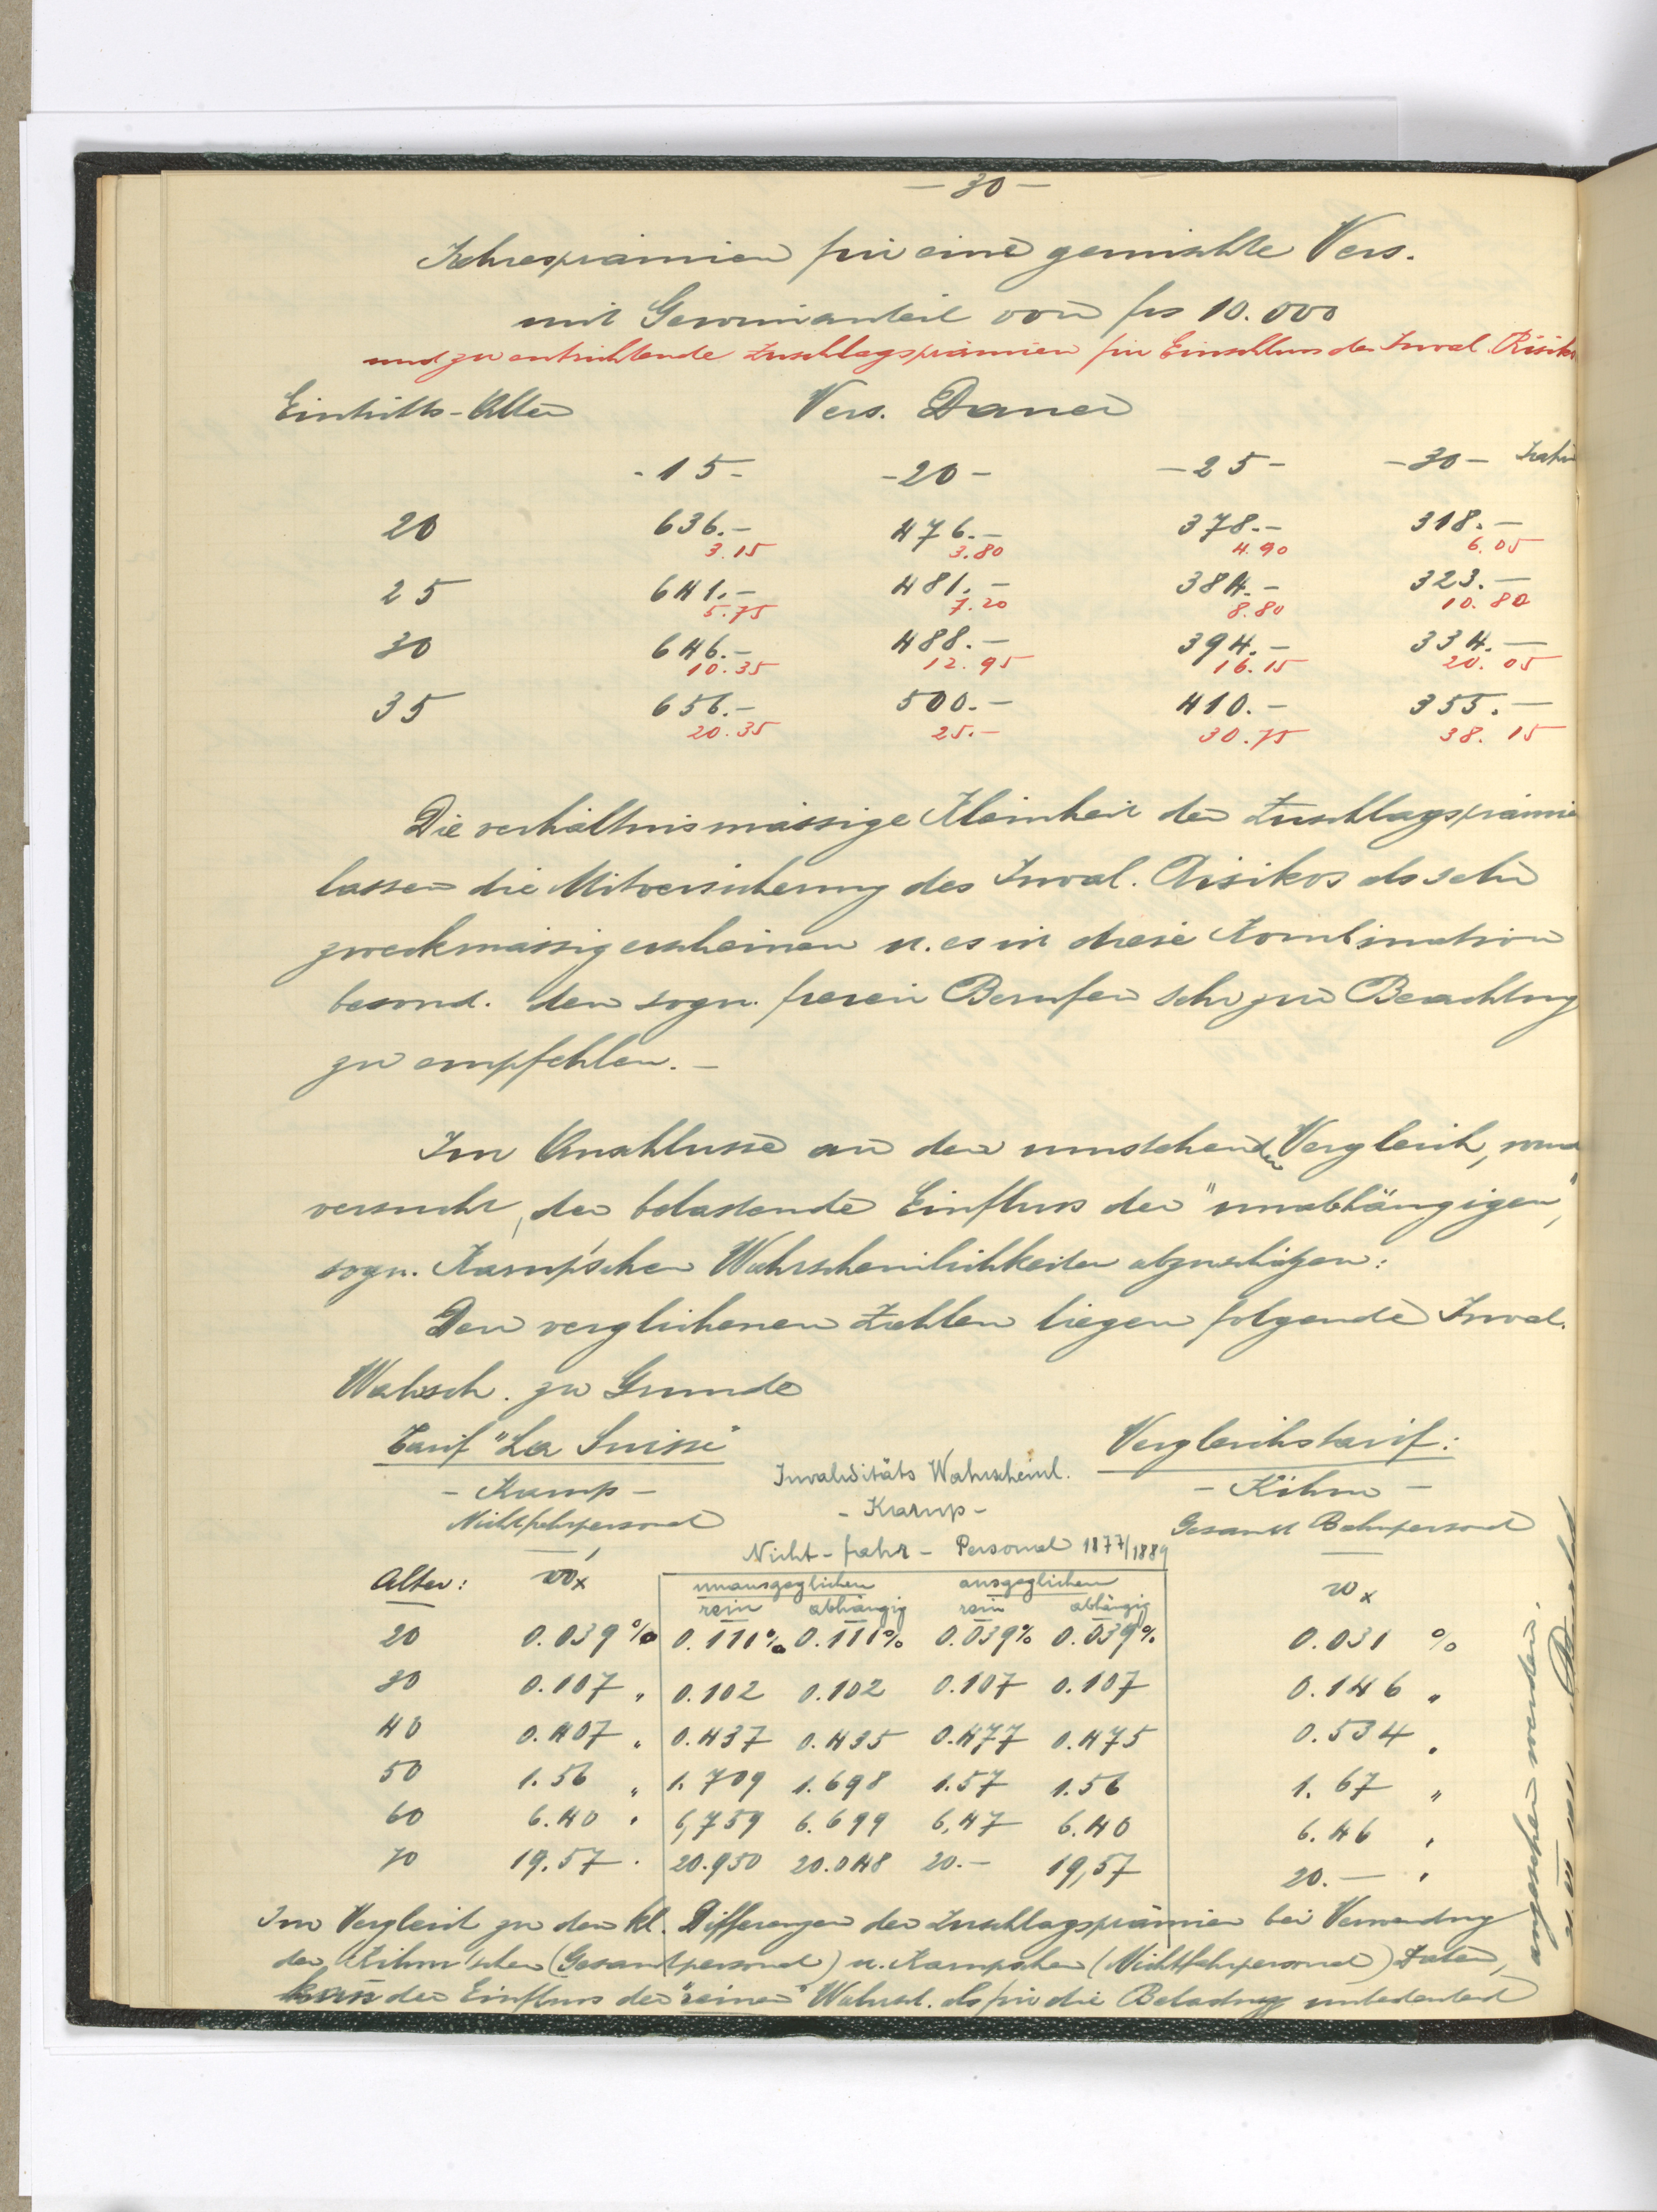 — 30 —
Jahresprämien für eine gemischte Vers.
mit Gewinnanteil von frs 10.000
und zu entrichtende Zuschlagsprämien für Einschluss des Inval. Risikos
Eintritts-Alter Vers. Dauer
-15- -20- -25- -30- Jahre
20 636.- 476.- 378.- 318.-
3.15 3.80 4.90 6.05
25 641.- 481.- 384.- 323.-
5.75 7.20 8.80 10.80
30 646.- 488.- 394.- 334.-
10.35 12.95 16.15 20.05
35 656.- 500.- 410.- 355.-
20.35 25.- 30.75 38.15
Die verhältnismässige Kleinheit der Zuschlagsprämie
lassen die Mitversicherung des Inval. Risikos als sehr
zweckmässig erscheinen u. es ist diese Kombination
besond. den sogn. freien Berufen sehr zur Beachtung
zu empfehlen. -
Im Anschlusse an den umstehenden Vergleich, wird
versucht, der belastende Einfluss der "unabhängigen",
sogn. Karup'schen Wahrscheinlichkeiten abzuschätzen:
Den verglichenen Zahlen liegen folgende Inval.
Wahrsch. zu Grunde
Tarif "La Suisse" Vergleichstarif:
- Karup - Invaliditäts Wahrscheinl. - Kihm -
Nichtfahrpersonal - Karup - Gesamt Bahnpersonal
Nicht-fahr-Personal 1877/1889
Alter: w'x unausgeglichen ausgeglichen wx
rein abhängig rein abhängig
20 0.039 % 0.111% 0.111% 0.039% 0.039% 0.031 %
30 0.107 " 0.102 0.102 0.107 0.107 0.146 "
40 0.407 " 0.437 0.435 0.477 0.475 0.534 "
50 1.56 " 1.709 1.698 1.57 1.56 1.67 "
60 6.40 " 6,759 6.699 6,47 6.40 6.46 "
70 19.57 " 20.950 20.048 20.- 19,57 20.- "
Im Vergleich zu den kl. Differenzen der Zuschlagsprämien bei Verwendung
der Kihm'schen (Gesamtpersonal) u. Karup'schen (Nichtfahrpersonal) Daten,
kann der Einfluss der "reinen" Wahrsch. als für die Belastung unbedeutend
angesehen werden.